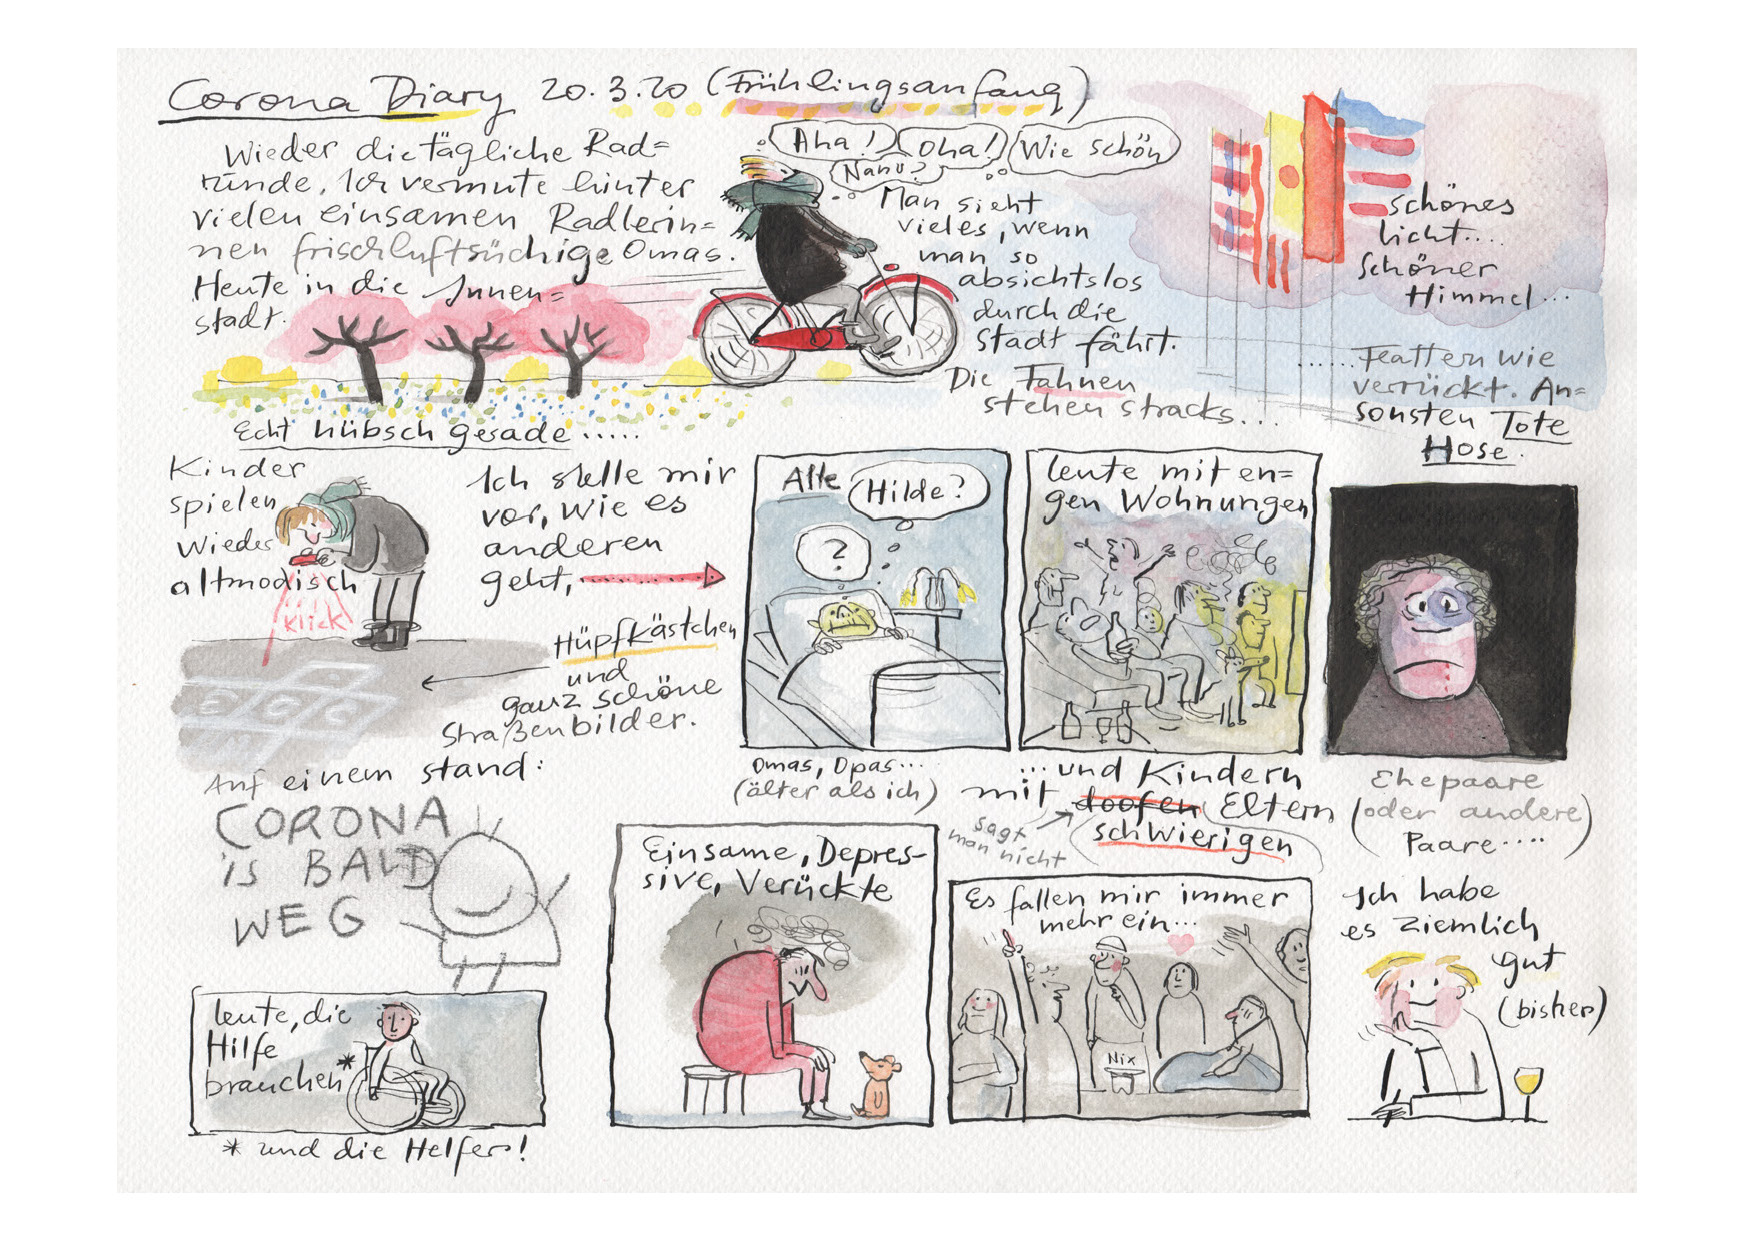 Corona Diary 20.3.20 (Frühlingsanfang)
Wieder die tägliche Rad=
runde. Ich vermute hinter
vielen einsamen Radlerin=
nen frischluftsüchtige Omas.
Heute in die Innen=
stadt.
Aha!
Oha!
Wie schön
Nanu?
Man sieht
vieles, wenn
man so
absichtslos
durch die
Stadt fährt.
Die Fahnen
stehen stracks...
schönes
Licht....
schöner
Himmel...
.....Flattern wie
verrückt. An=
sonsten Tote
Hose.
Echt hübsch gerade.....
Kinder
spielen
wieder
altmodisch
klick
Hüpfkästchen
und
ganz schöne
Straßenbilder.
Auf einem stand:
CORONA
is BALD
WEG
Ich stelle mir
vor, wie es
anderen
geht,
Alte
Hilde?
?
Omas, Opas...
(älter als ich)
Leute mit en=
gen Wohnungen
...und Kindern
mit doofen Eltern
schwierigen
sagt
man nicht
Ehepaare
(oder andere)
Paare....
Leute, die
Hilfe
brauchen*
* und die Helfer!
Einsame, Depres-
sive, Verückte
Es fallen mir immer
mehr ein...
Nix
Ich habe
es ziemlich
gut
(bisher)